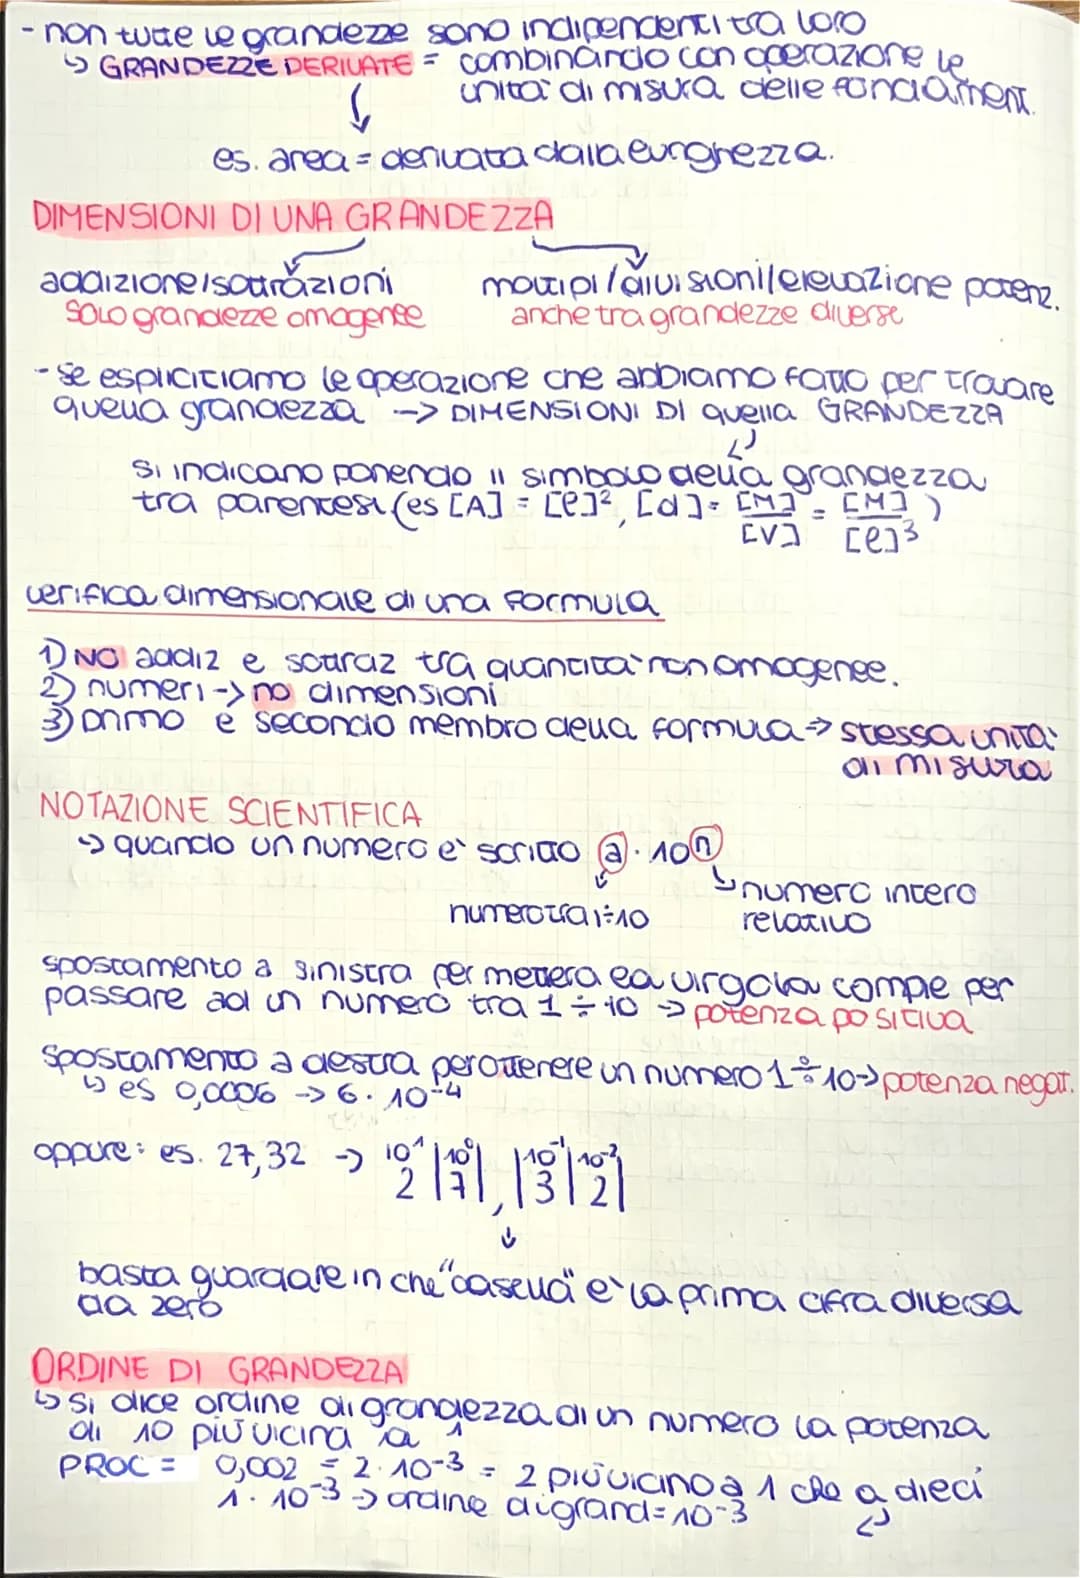 - non tutte le grandezze sono indipendenti tra loro
↳ GRANDEZZE DERIVATE = combinando con operazione le
unità di misura delle fondament.
es. area = derivata dalla lunghezza.
DIMENSIONI DI UNA GRANDEZZA
addizione/sottrazioni
moltipl/divisioni/elevazione potenz.
solo grandezze omogenee
anche tra grandezze diverse
- se esplicitiamo le operazione che abbiamo fatto per trovare
quella grandezza -> DIMENSIONI DI quella GRANDEZZA
si indicano ponendo il simbolo della grandezza
tra parentesi (es [A] = [l]², [d] = [M]/[V] = [M]/[l]³)
verifica dimensionale di una formula
1) NO addiz e sottraz tra quantità non omogenee.
2) numeri -> no dimensioni
3) primo e secondo membro della formula -> stessa unità
di misura
NOTAZIONE SCIENTIFICA
↳ quando un numero è scritto a · 10ⁿ
numero intero
numero tra 1÷10
relativo
spostamento a sinistra per mettera la virgola compie per
passare ad un numero tra 1 ÷ 10 -> potenza positiva
spostamento a destra per ottenere un numero 1 ÷ 10 -> potenza negat.
↳ es 0,0006 -> 6 · 10⁻⁴
oppure: es. 27,32 -> 10¹ | 10⁰ | 10⁻¹ | 10⁻²
2 | 7 | , | 3 | 2 |
basta guardare in che "casella" è la prima cifra diversa
da zero
ORDINE DI GRANDEZZA
↳ si dice ordine di grandezza di un numero la potenza
di 10 più vicina a 1
PROC = 0,002 = 2 · 10⁻³ = 2 più vicino a 1 che a dieci
1 · 10⁻³ -> ordine di grand = 10⁻³